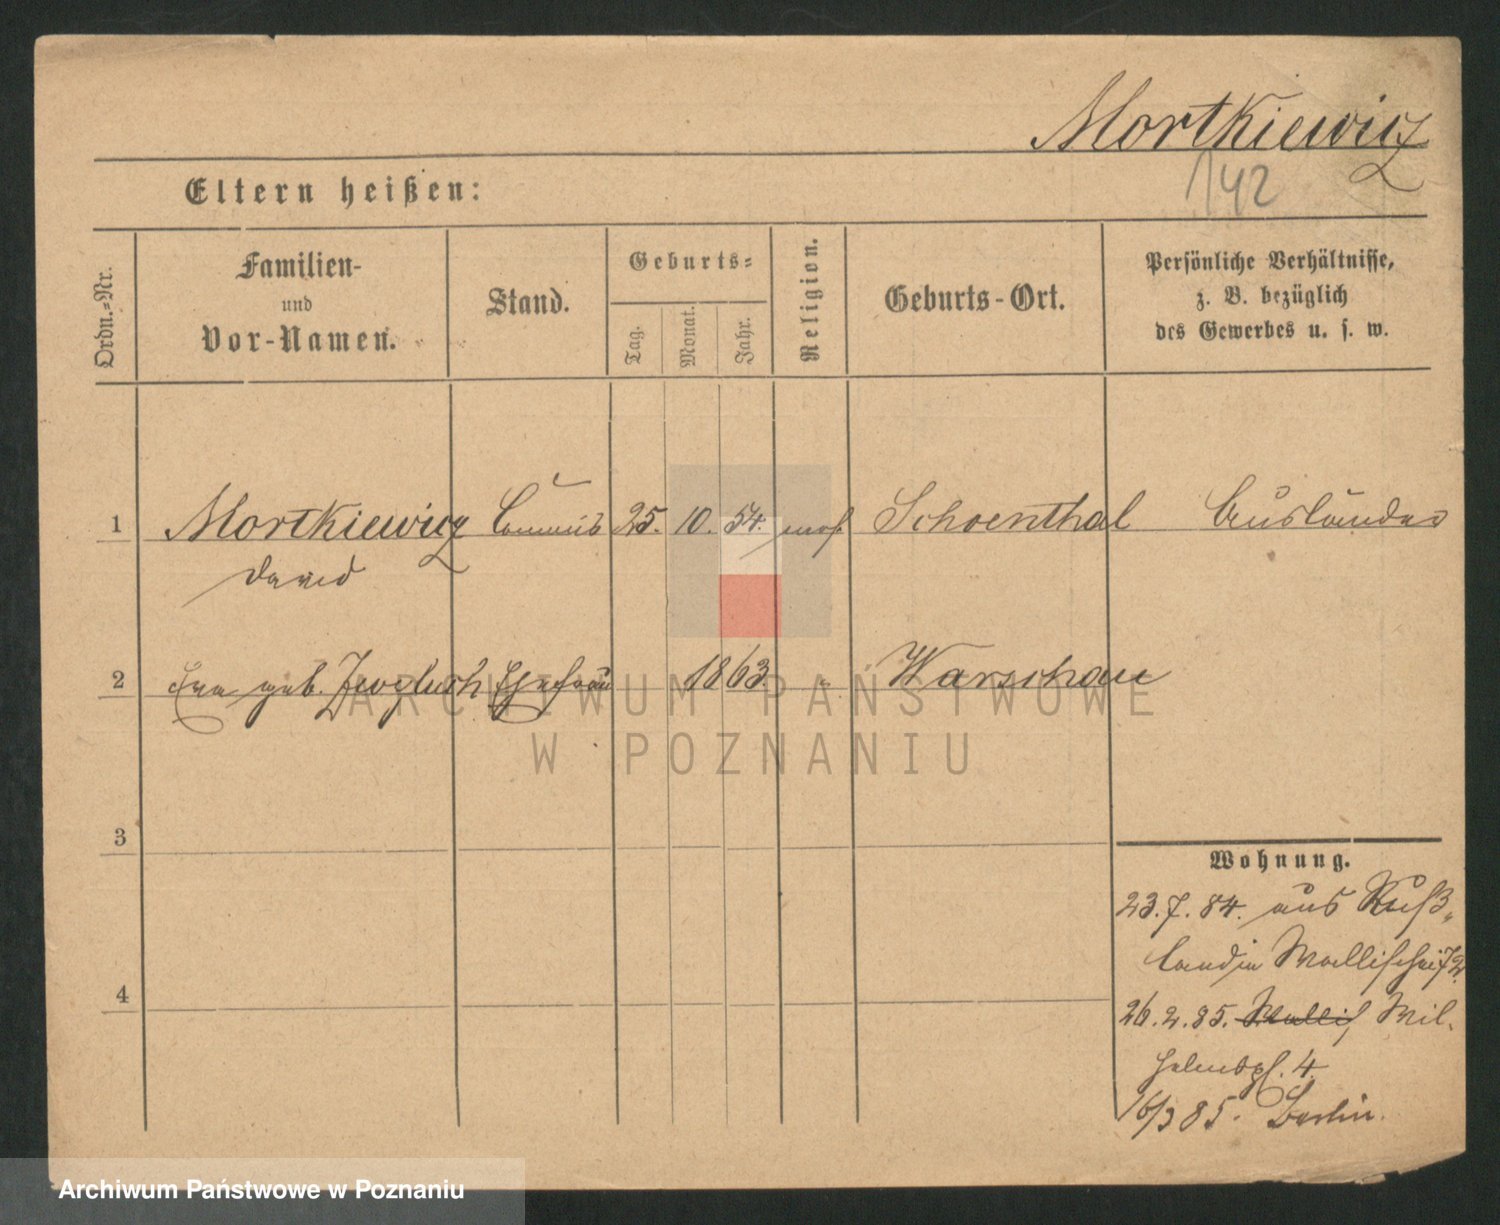 Mortkiewicz
142
Eltern heißen:
Ordn.-Nr.
Familien-
und
Vor-Namen.
Stand.
Geburts-
Tag.
Monat.
Jahr.
Religion.
Geburts-Ort.
Persönliche Verhältnisse,
z. B. bezüglich
des Gewerbes u. s. w.
1 Mortkiewicz Commis 25. 10. 54. mos. Schoenthal Ausländer
David
2 Eva geb. Ehefrau 1863 " Warschau
ARCHIWUM PAŃSTWOWE
W POZNANIU
3
Wohnung.
23.7.84. aus Ruß-
land in Wallischei 72
4
26.2.85. Wallis Wil-
helmspl. 4.
16/3 85. Berlin.
Archiwum Państwowe w Poznaniu